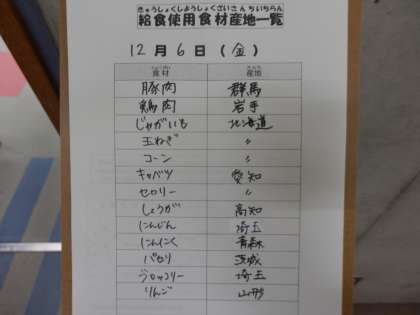 きゅうしょくしようしょくざいさんちいちらん
給食使用食材産地一覧
12月6日(金)
しょくざい さんち
食材 産地
豚肉 群馬
鶏肉 岩手
じゃがいも 北海道
玉ねぎ 〃
コーン 〃
キャベツ 愛知
セロリー 〃
しょうが 高知
にんじん 埼玉
にんにく 青森
パセリ 茨城
ブロッコリー 埼玉
りんご 山形